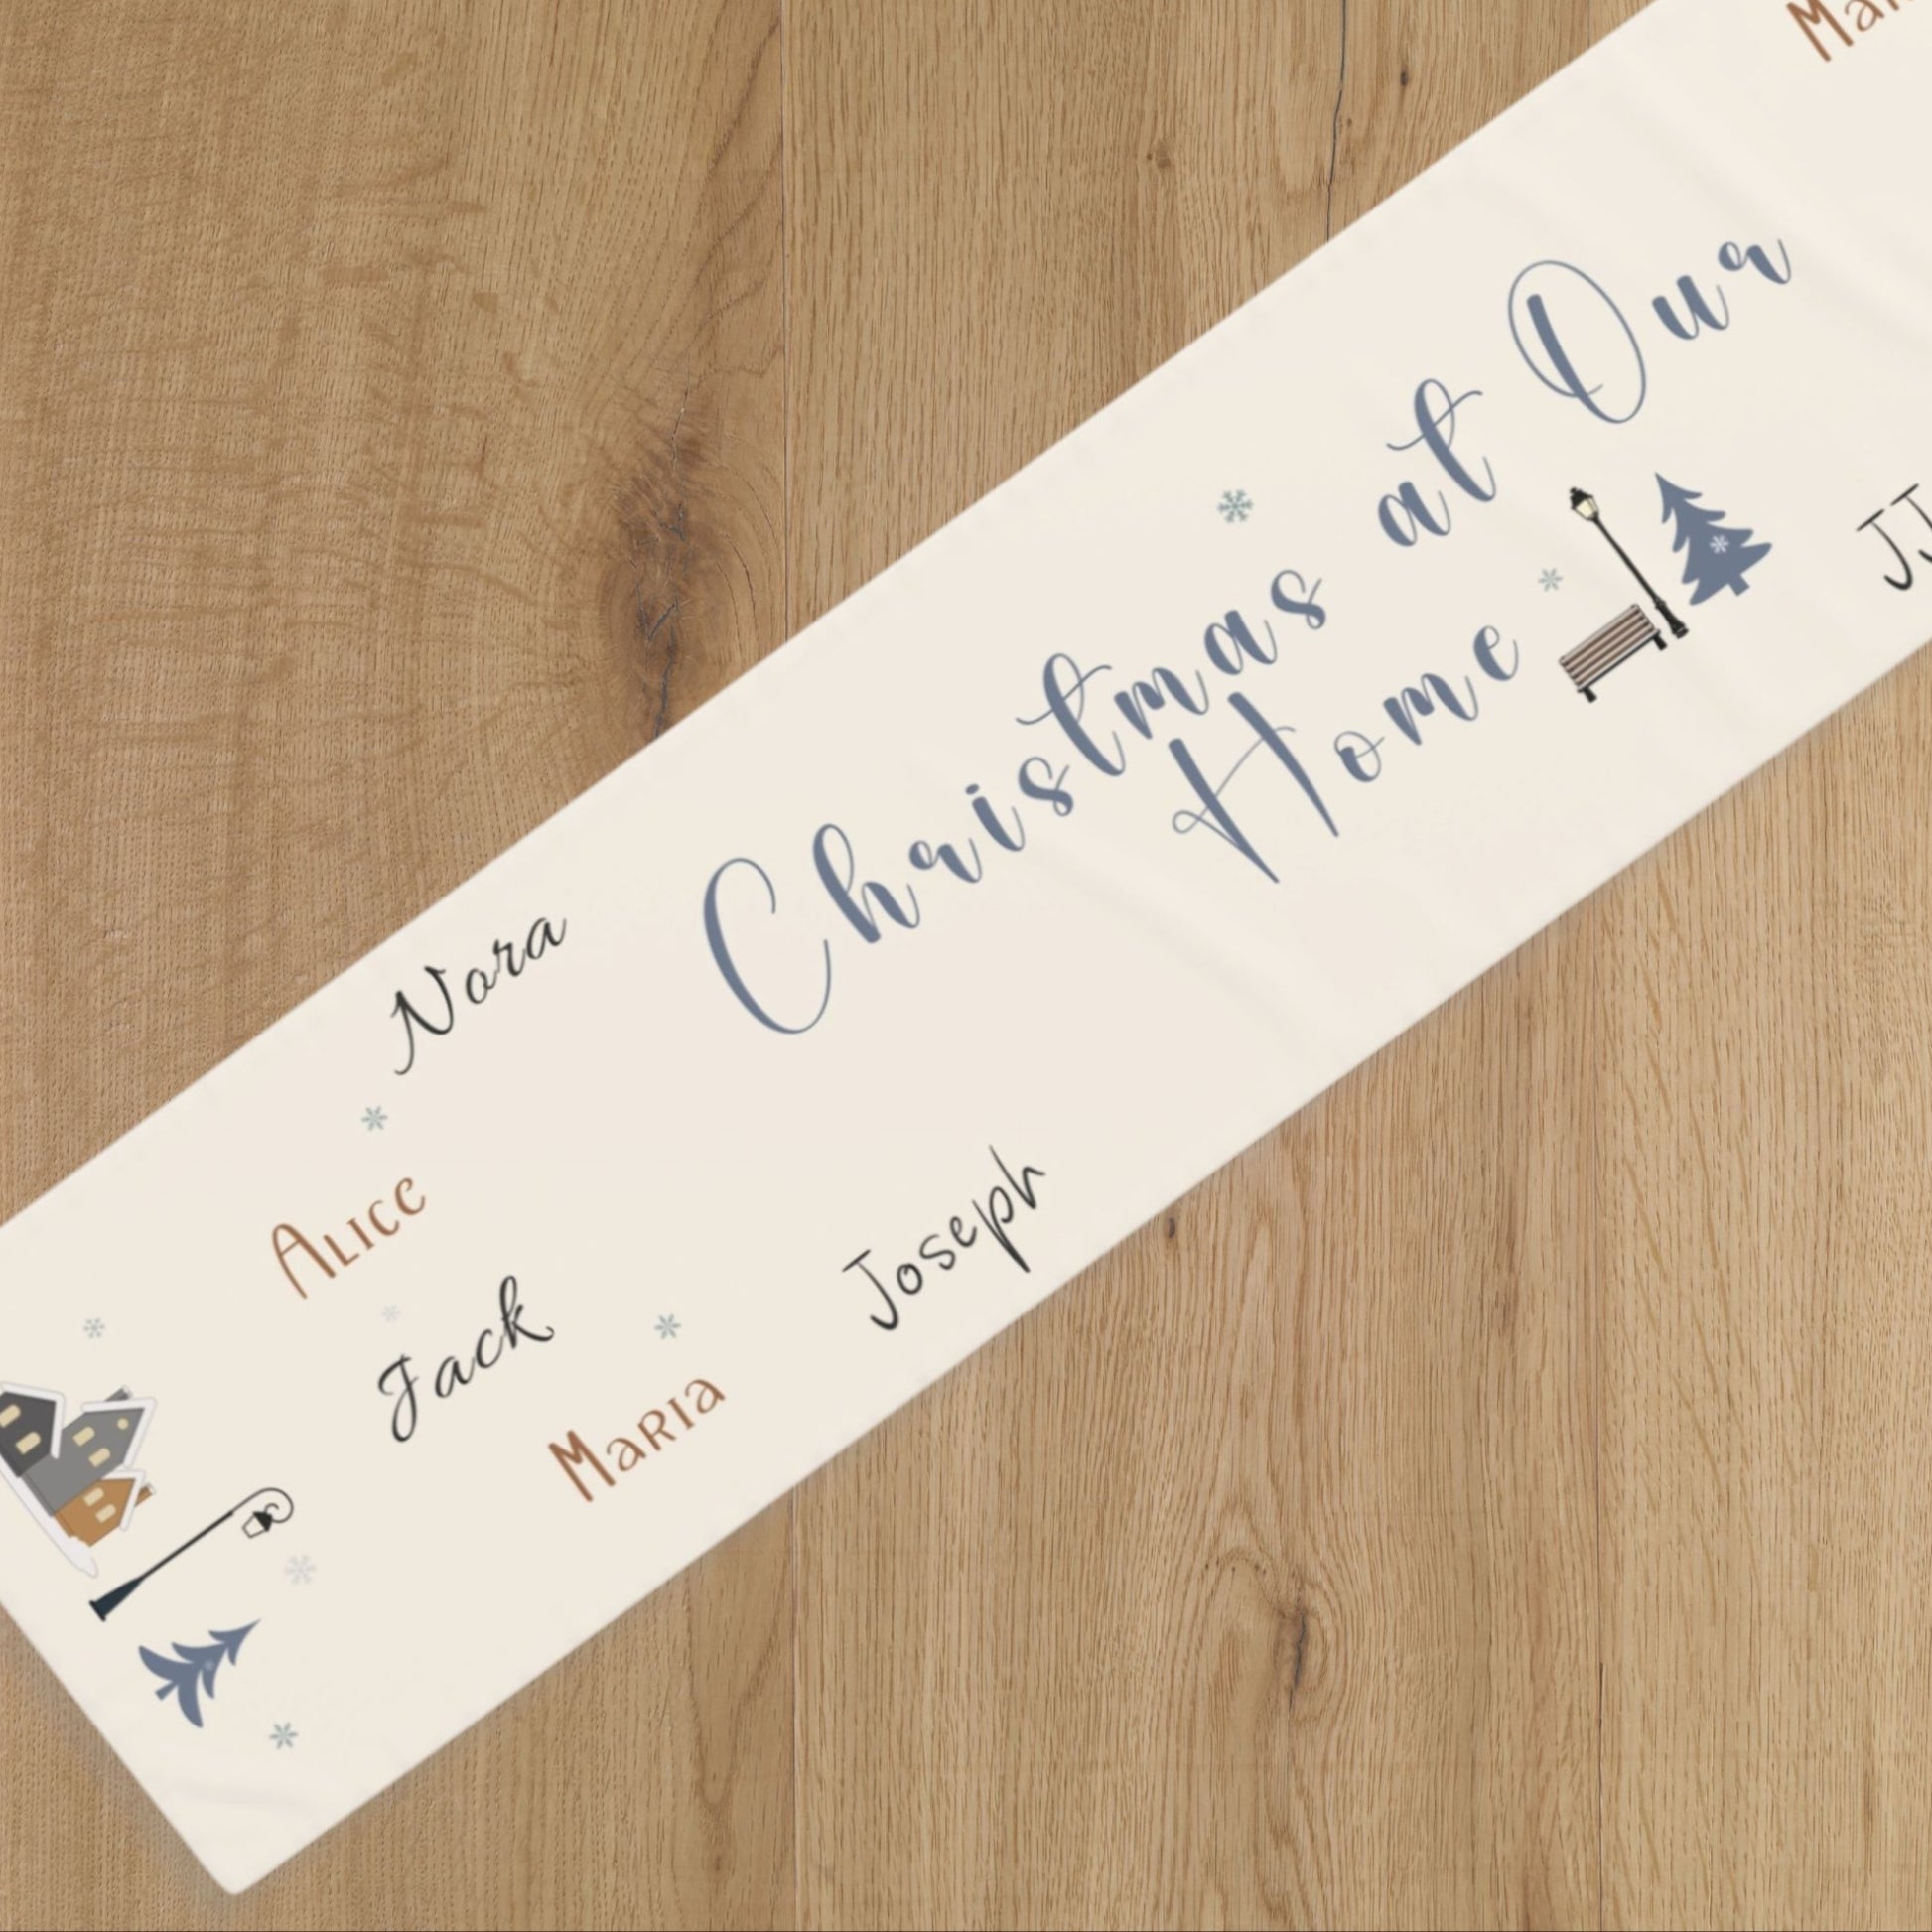 Nora
Christmas at Our
Home
Alice
Jack
Maria
Joseph